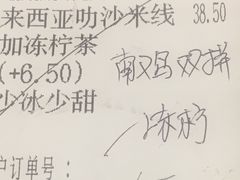 来西亚叻沙米线 38.50
加冻柠茶
(+6.50)
少冰少甜
南鸡双拼
冻柠
户订单号：